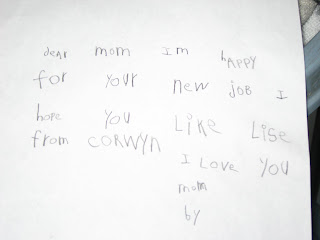 dear mom Im hAPPY
for your new JoB I
hope you Like Lise
from CORWYN
I Love you
mom
by